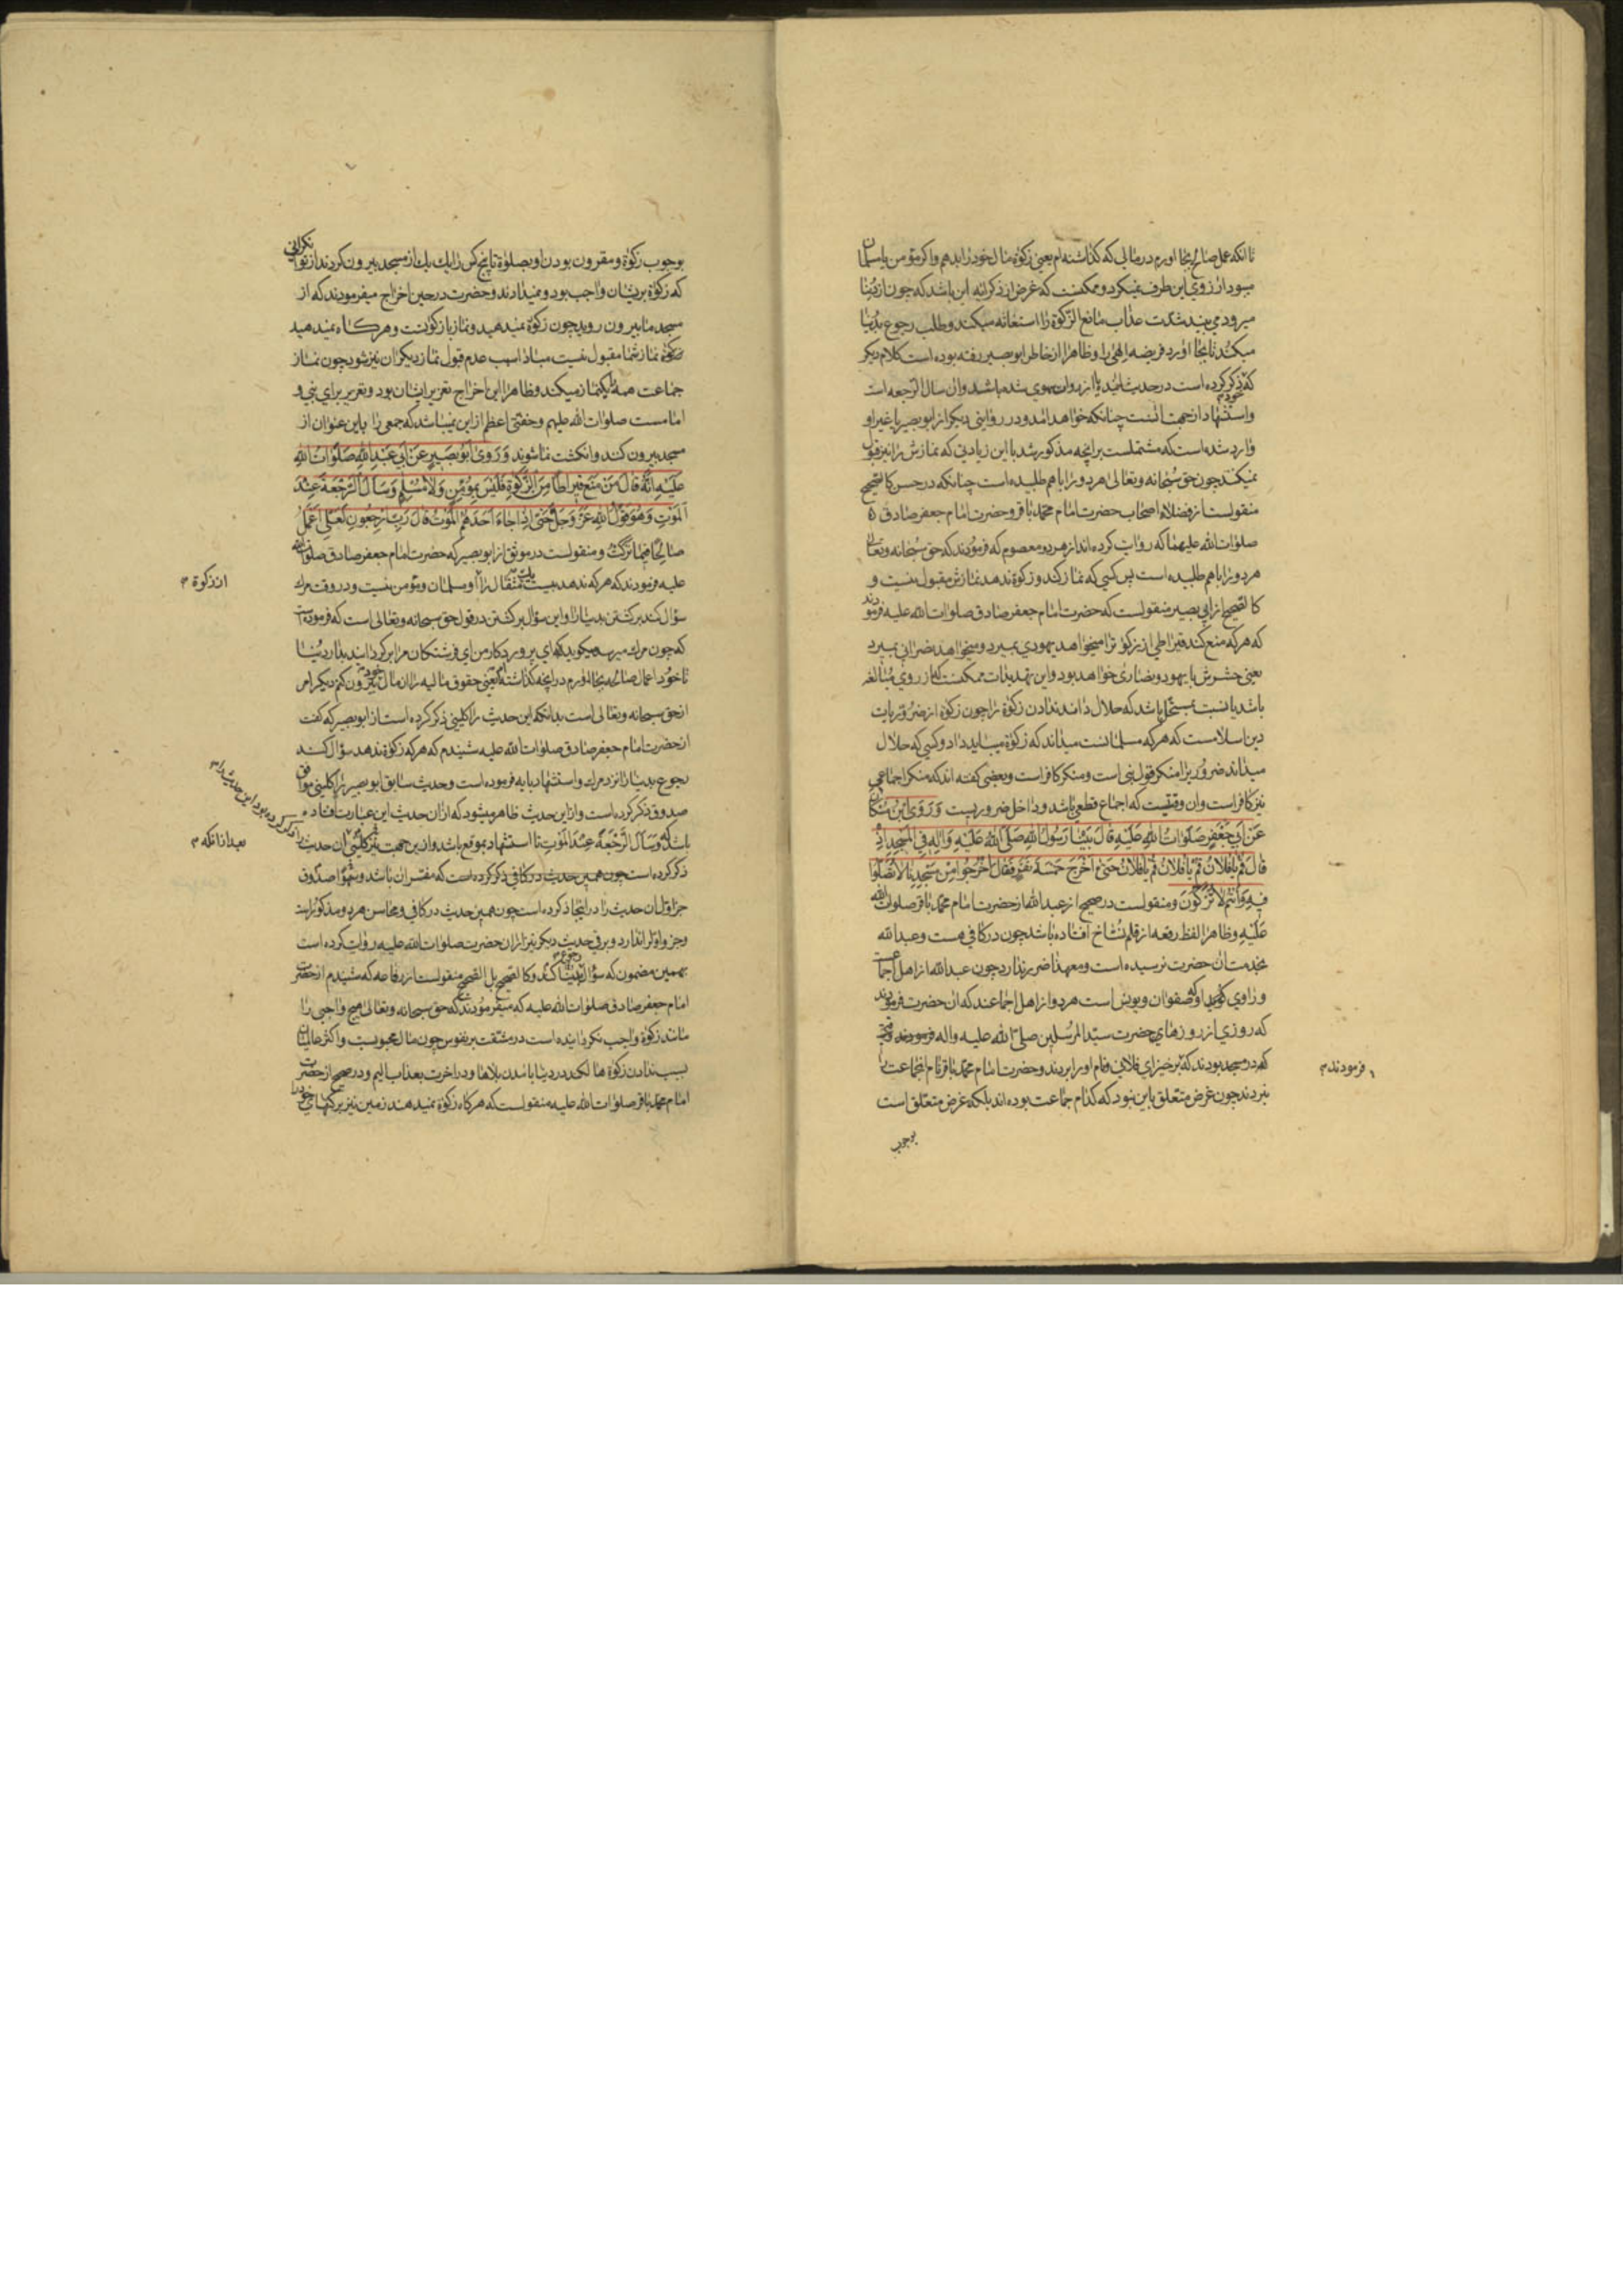 تا انکه عمل صالح بجا اورم در مالی که کذاشته ام یعنی زکوة مال خود را بدهم واکر مؤمن یا مسلمان
میبود ارزوی این طرف نمیکرد وممکنست که غرض از ذکر ایه این باشد که چون از دنیا
میرود می بیند شدت عذاب مانع الزکوة را استغاثه میکند و طلب رجوع بدنیا
میکند تا بجا اورد فریضه الهی را و ظاهرا از خاطر ابو بصیر رفته بوده است کلام دیکر
که ذکر کرده است در حدیث یا از راوی سهوی شده باشد وان سال الرجعه است
واستشهاد از جهت انست چنانکه خواهد امد ودر روایتی دیکر از ابو بصیر یا غیر او
وارد شده است که مشتملست بر انچه مذکور شد با این زیادتی که نمازش را نیز قبول
نمیکنند چون حق سبحانه وتعالی هر دو را با هم طلبیده است چنانکه در حسن کالصحیح
منقولست از فضلاء اصحاب حضرت امام محمد باقر وحضرت امام جعفر صادق
صلوات الله علیهما که روایت کرده اند از هر دو معصوم که فرمودند که حق سبحانه وتعالی
هر دو را با هم طلبیده است پس کسی که نماز کند وزکوة ندهد نمازش مقبول نیست و
کالصحیح از ابی بصیر منقولست که حضرت امام جعفر صادق صلوات الله علیه فرمودند
که هر که منع کند قیراطی از زکوة را میخواهد یهودی بمیرد ومیخواهد نصرانی بمیرد
یعنی حشرش با یهود ونصاری خواهد بود واین تهدیدات ممکنست که از روی مبالغه
باشد یا نسبت بمستحل باشد که حلال داند ندادن زکوة را چون زکوة از ضروریات
دین اسلامست که هر که مسلمانست میداند که زکوة میباید داد وکسی که حلال
میداند ضروری را منکر قول نبی است ومنکر کافر است وبعضی کفته اند که منکر اجماعی
نیز کافر است وان وقتیست که اجماع قطعی باشد وداخل ضروریست وروی ابن مسکان
عن ابی جعفر صلوات الله علیه قال بینا رسول الله صلی الله علیه واله فی المسجد اذ
قال قم یا فلان قم یا فلان قم یا فلان حتی اخرج خمسة نفر فقال اخرجوا من مسجدنا لا تصلوا
فیه وانتم لا تزکون ومنقولست در صحیح از عبد الله از حضرت امام محمد باقر صلوات الله
علیه وظاهرا لفظ رفعه از قلم نساخ افتاده باشد چون در کافی هست وعبد الله
بخدمت ان حضرت نرسیده است ومعهذا ضرر ندارد چون عبد الله از اهل اجماعست
وراوی او که صفوان ویونس است هر دو از اهل اجماعند که ان حضرت فرمودند
که روزی از روزهای حضرت سید المرسلین صلی الله علیه واله
که در مسجد بودند که برخیز ای فلانی ونام او را بردند وحضرت امام محمد باقر نام انجماعت را
نبردند چون غرض متعلق باین نبود که کدام جماعت بوده اند بلکه غرض متعلق است
بوجوب
فرمودند
بوجوب زکوة ومقرون بودن او بصلوة تا پنج کس را یک یک از مسجد بیرون کردند از
که زکوة بر ایشان واجب بود ونمیدادند وحضرت در حین اخراج میفرمودند که از
مسجد ما بیرون روید چون زکوة نمیدهید ونماز با زکوتست وهرکاه نمیدهید
زکوة نماز شما مقبول نیست مبادا سبب عدم قبول نماز دیکران نیز شود چون نماز
جماعت همه یکنماز میکند وظاهرا این اخراج تعزیر ایشان بود وتعزیر برای نبی و
امامست صلوات الله علیهم وخفتی اعظم از این نمیباشد که جمعی را باین عنوان از
مسجد بیرون کنند وانکشت نما شوند وروی ابو بصیر عن ابی عبد الله صلوات الله
علیه انه قال من منع قیراطا من الزکوة فلیس بمؤمن ولا مسلم وسال الرجعة عند
الموت وهو قول الله عز وجل حتی اذا جاء احدهم الموت قال رب ارجعون لعلی اعمل
صالحا فیما ترکت ومنقولست در موثق از ابو بصیر که حضرت امام جعفر صادق صلوات الله
علیه فرمودند که هر که ندهد بیست یک مثقال را او مسلمان ومؤمن نیست ودر وقت مرک
سؤال کند برکشتن بدنیا را واین سؤال برکشتن در قول حق سبحانه وتعالی است که فرموده است
که چون مرک میرسد میکوید که ای پروردکار من ای فرشتکان مرا برکردانید بدار دنیا
تا خود اعمال صالحه بجا اورم در انچه کذاشته ام یعنی حقوق مالیه را از مال خود بیرون کنم دیکر امر
از حق سبحانه وتعالی است بدانکه این حدیث را کلینی ذکر کرده است از ابو بصیر که کفت
از حضرت امام جعفر صادق صلوات الله علیه شنیدم که هر که زکوة ندهد سؤال کند
رجوع بدنیا را نزد مرک واستشهاد بایه فرموده است وحدیث سابق ابو بصیر را کلینی موافق
صدوق ذکر کرده است واز این حدیث ظاهر میشود که از ان حدیث این عبارت افتاده
باشد که وسال الرجعة عند الموت تا استشهاد بموقع باشد واز این جهت نیز کلینی ان حدیث را
ذکر کرده است چون همین حدیث در کافی ذکر کرده است که مفسر ان باشد وسهوا صدوق
جزو اول ان حدیث را در اینجا ذکر کرده است چون همین حدیث در کافی ومحاسن هر دو مذکور است
وجزو اول را ندارد وبرقی حدیث دیکر نیز از ان حضرت صلوات الله علیه روایت کرده است
بهمین مضمون که سؤال رجوع بدنیا کند وکالصحیح بل الصحیح منقولست از رفاعه که شنیدم از حضرت
امام جعفر صادق صلوات الله علیه که میفرمودند که حق سبحانه وتعالی هیچ واجبی را
مانند زکوة واجب نکردانیده است در مشقت بر نفوس چون مال محبوبست واکثر عالمیان
بسبب ندادن زکوة هالکند در دنیا بامدن بلاها ودر اخرت بعذاب الیم ودر صحیح از حضرت
امام محمد باقر صلوات الله علیه منقولست که هرکاه زکوة نمیدهند زمین نیز برکتهای خود را
از زکوة
بعد از انکه